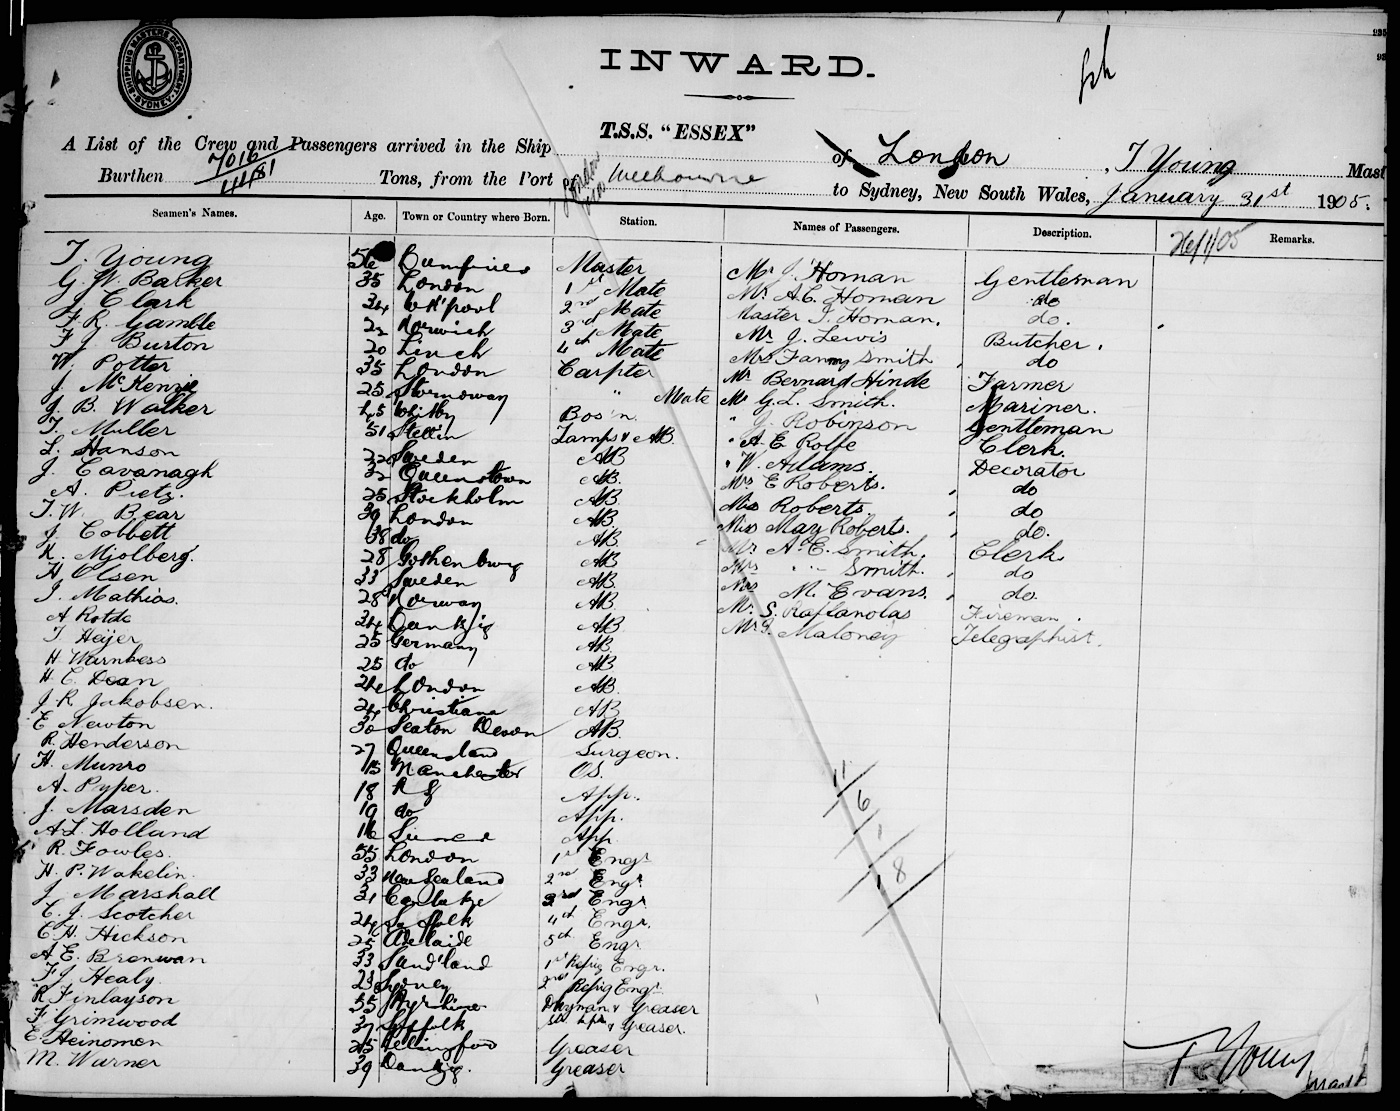 SHIPPING MASTER'S DEPARTMENT SYDNEY
INWARD.
T.S.S. "ESSEX"
A List of the Crew and Passengers arrived in the Ship of London, T Young Mast
Burthen 7016 Tons, from the Port London via Melbourne to Sydney, New South Wales, January 31st 1905.
Seamen's Names. Age. Town or Country where Born. Station. Names of Passengers. Description. Remarks.
T. Young 56 Dumfries Master Mr J. Homan Gentleman
G. W. Barker 35 London 1st Mate Mr. A.C. Homan do
J Clark 34 2nd Mate Master I. Homan. do.
F. R. Gamble 22 Norwich 3rd Mate Mr. J. Lewis Butcher.
F J Burton 20 4th Mate Mrs Fanny Smith do
W. Potter 35 London Carpter Mr Bernard Hinde Farmer
J. McKenzie 25 Stornoway " Mate Mr G.L. Smith. Mariner.
J. B. Walker 45 Whitby Bos'n. " J. Robinson Gentleman
T. Muller 51 Stettin Lamps & AB. " A. E Rolfe Clerk.
L. Hanson 22 Sweden AB " W. Adams. Decorator
J. Cavanagh 32 Queenstown AB. Mrs E Roberts. do
A. Pietz. 25 Stockholm AB Miss Roberts. do
T. W. Bear 39 London AB. Miss May Roberts. do.
J. Cobbett 38 do AB. Mr A. C. Smith. Clerk.
K. Mjolberg. 28 Gothenburg AB Mrs " " Smith. do
H. Olsen 33 Sweden AB. Mrs M. Evans. do.
J. Mathias. 28 Norway AB. Mr. S. Raftanolas Fireman.
A Rotde 24 Danzig AB Mr. J. Maloney Telegraphist.
T Heijer 25 Germany AB.
H Warnbess 25 do AB
H. C. Dean 24 London AB.
J. R. Jakobsen. 24 Christiana AB
E Newton 30 Seaton Devon AB.
R. Henderson 27 Queensland Surgeon.
H. Munro 15 Manchester OS.
A. Pyper. 18 App.
J. Marsden 19 do App.
A L. Holland 16 App.
R. Fowles. 55 London 1st Engr
H. P. Wakelin. 33 New Zealand 2nd Engr.
J Marshall 31 3rd Engr
C. J. Scotcher 24 Suffolk 4th Engr.
C H. Hickson 25 Adelaide 5th Engr
A. E. Brennan 33 Sund'land 1st Refrig Engr.
F J. Healy. 23 Sydney 2nd Refrig Engr.
R Finlayson 55 Ayrshire Dkyman & Greaser
F Grimwood 37 Suffolk & Greaser.
E Heinomen 25 Greaser
M. Warner 39 Danzig. Greaser
11
6
1
18
T Young
Mast